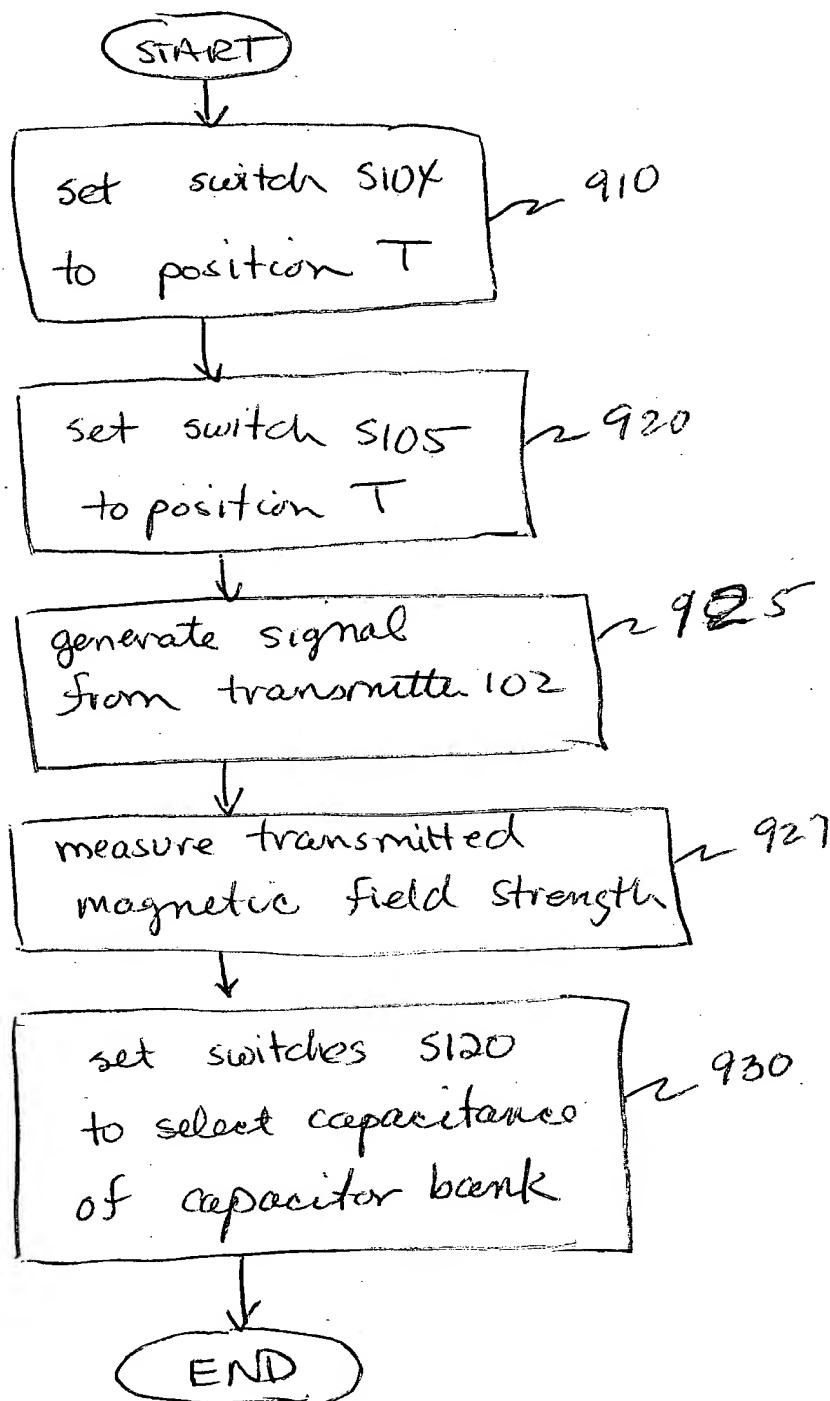 START
set switch S104
to position T
910
set switch S105
to position T
920
generate signal
from transmitte 102
925
measure transmitted
magnetic field strength
927
set switches S120
to select capacitance
of capacitor bank
930
END